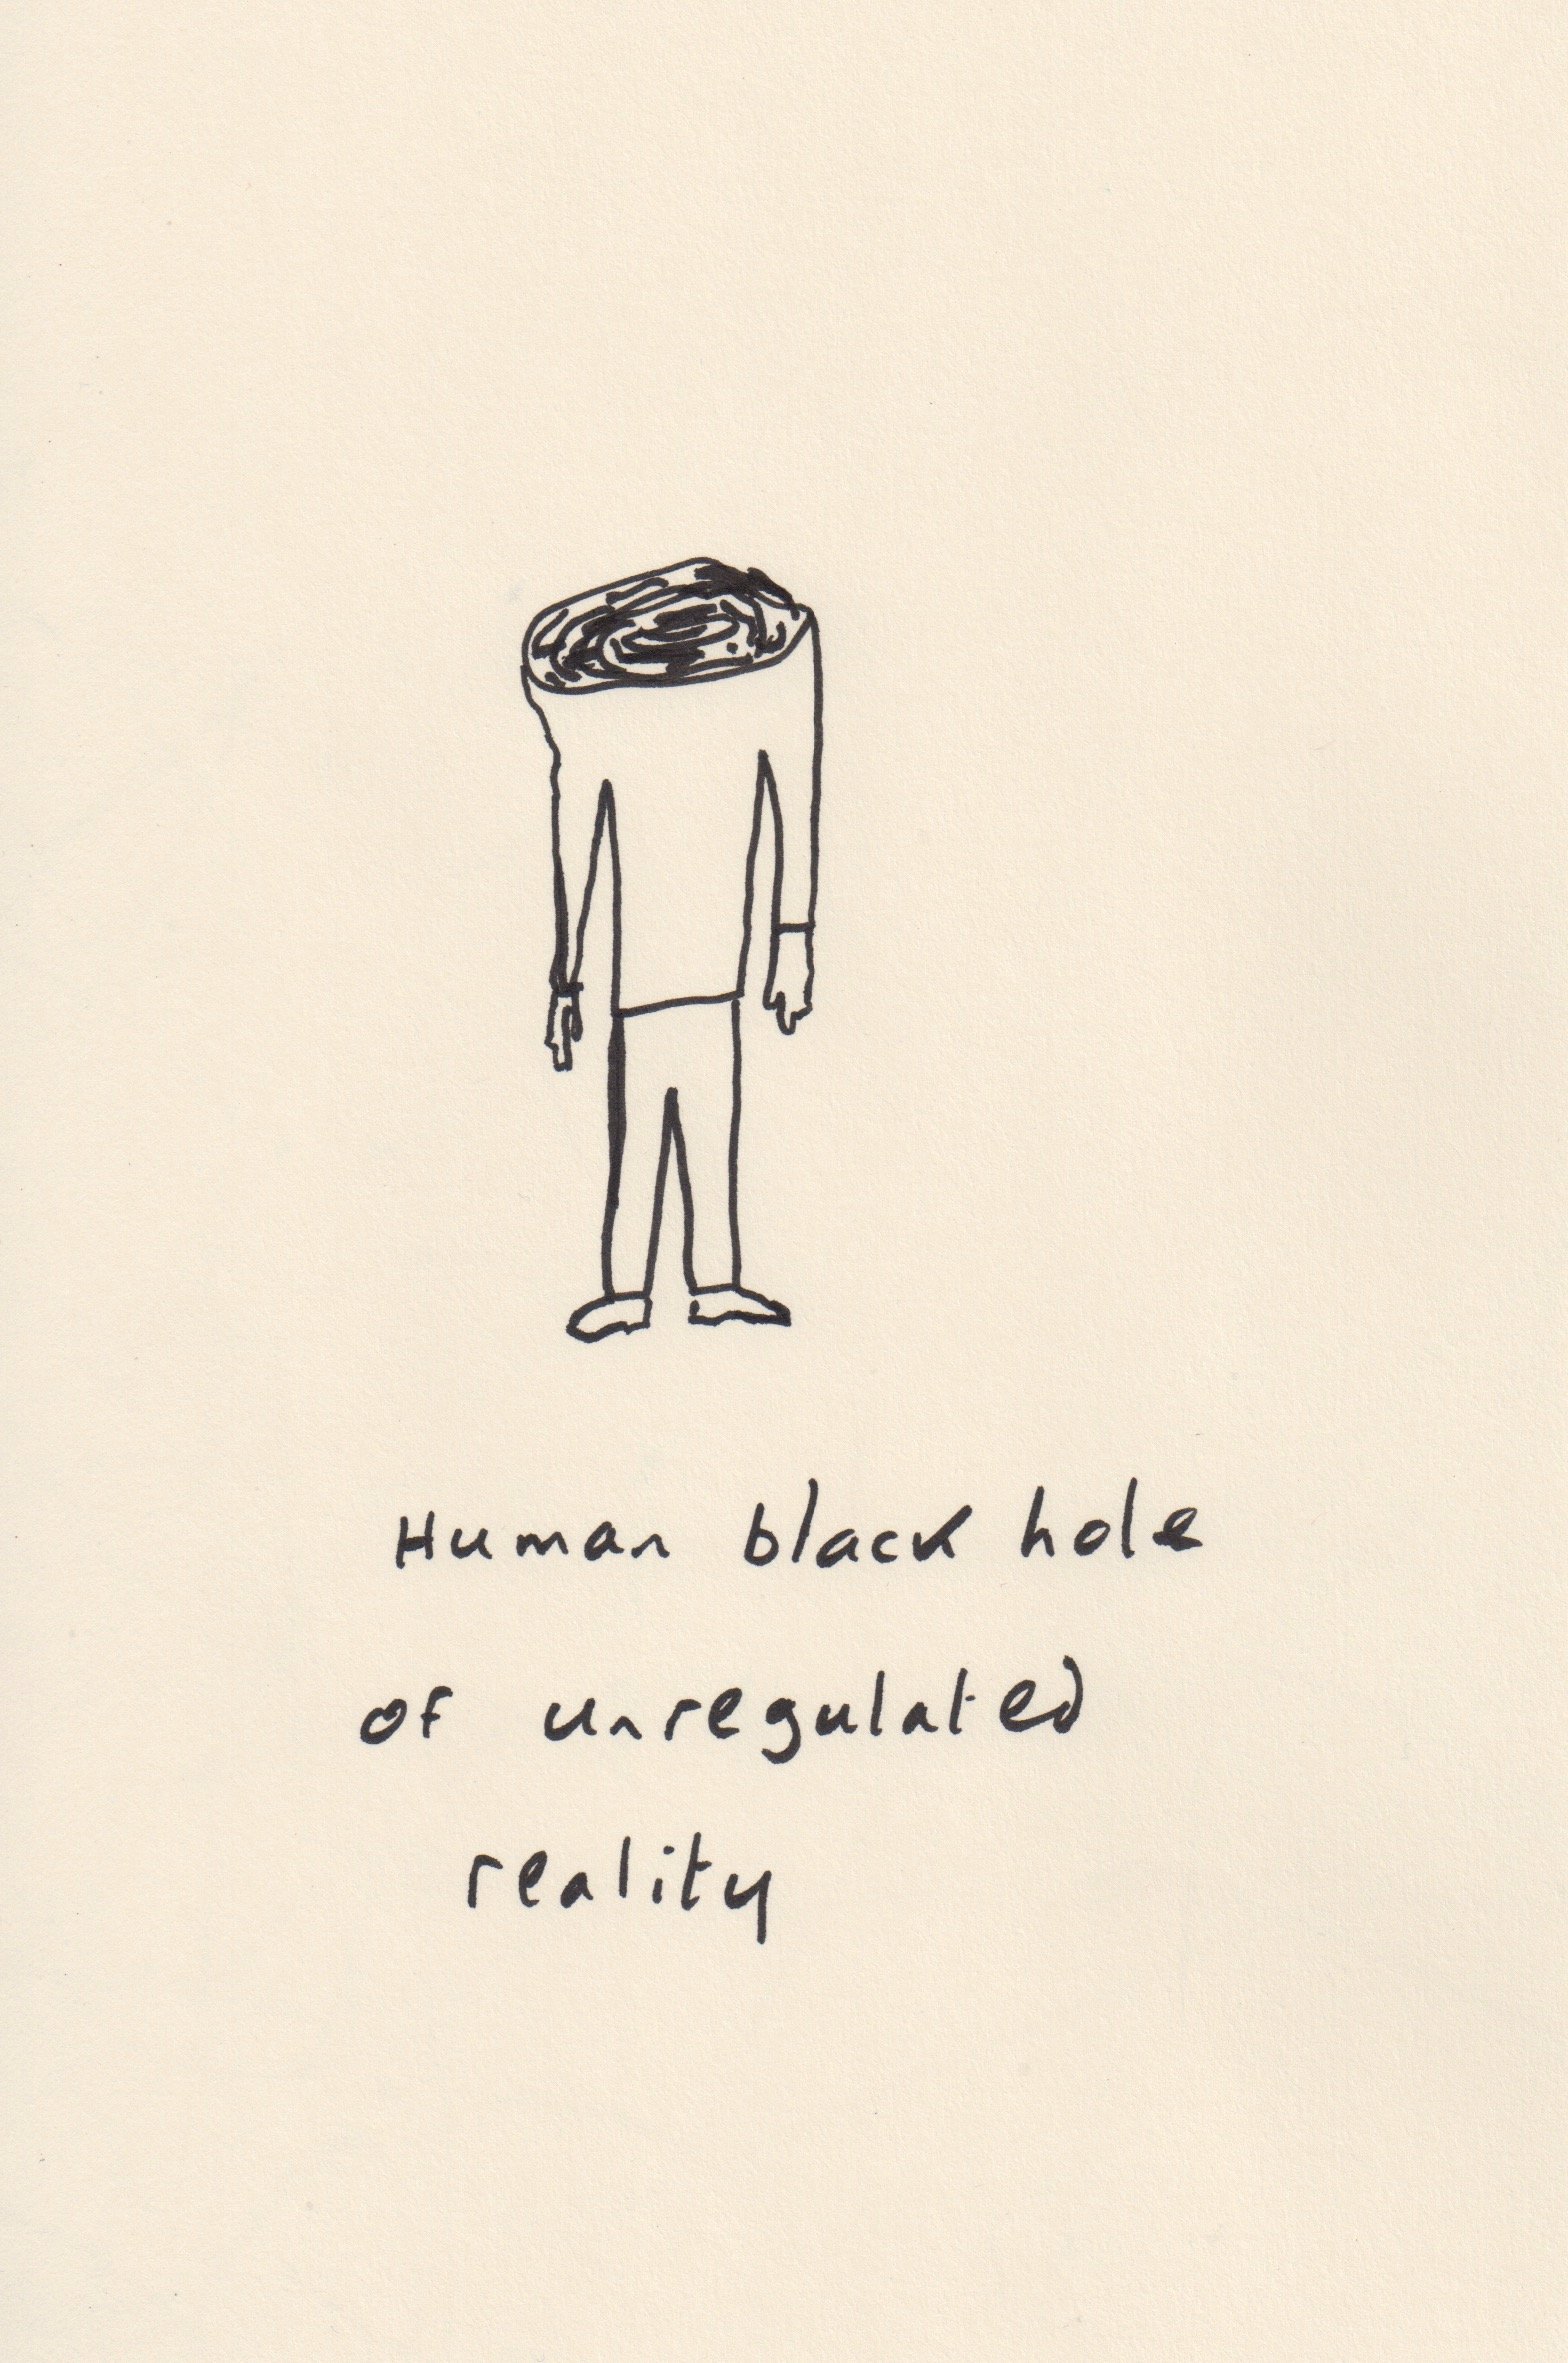 Human black hole
of unregulated
reality